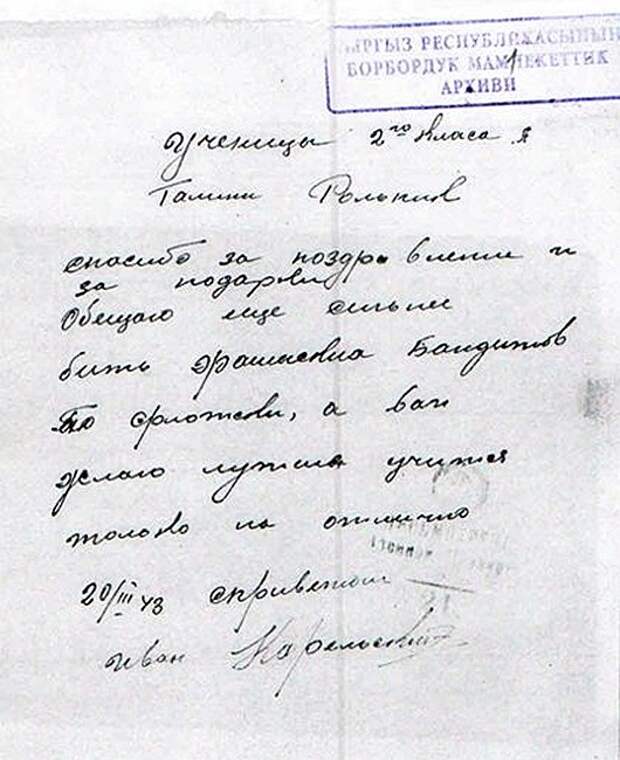 КЫРГЫЗ РЕСПУБЛИКАСЫНЫН
БОРБОРДУК МАМЛЕКЕТТИК
АРХИВИ
Ученицы 2го класа
Галины
спасибо за поздравления и
за подарки
Обещаю еще сильнее
бить фашиских Бандитов
, а вам
желаю лутше учится
толко на отлично
20/III 43 сприветом
Иван Карельский